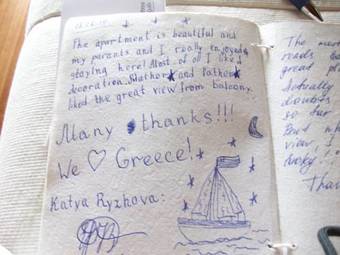 The apartment is beautiful and
my parents and I really enjoyed
staying here! Most of all I liked
decoration. Mother and father
liked the great view from balcony.
Many thanks!!!
We ♡ Greece!
Katya Ryzhova:
The most
great pl
Actually
doubts
so far
But wh
view, I
lucky!
Than